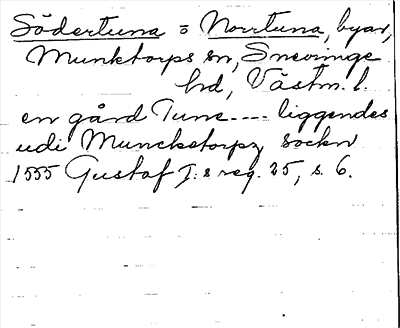 Södertuna o Norrtuna, byar,
Munktorps sn, Snevringe
hd, Västm. l.
en gård Tune---- liggendes
udi Munckctorps sockn
1555 Gustaf I:s reg. 25, s. 6.